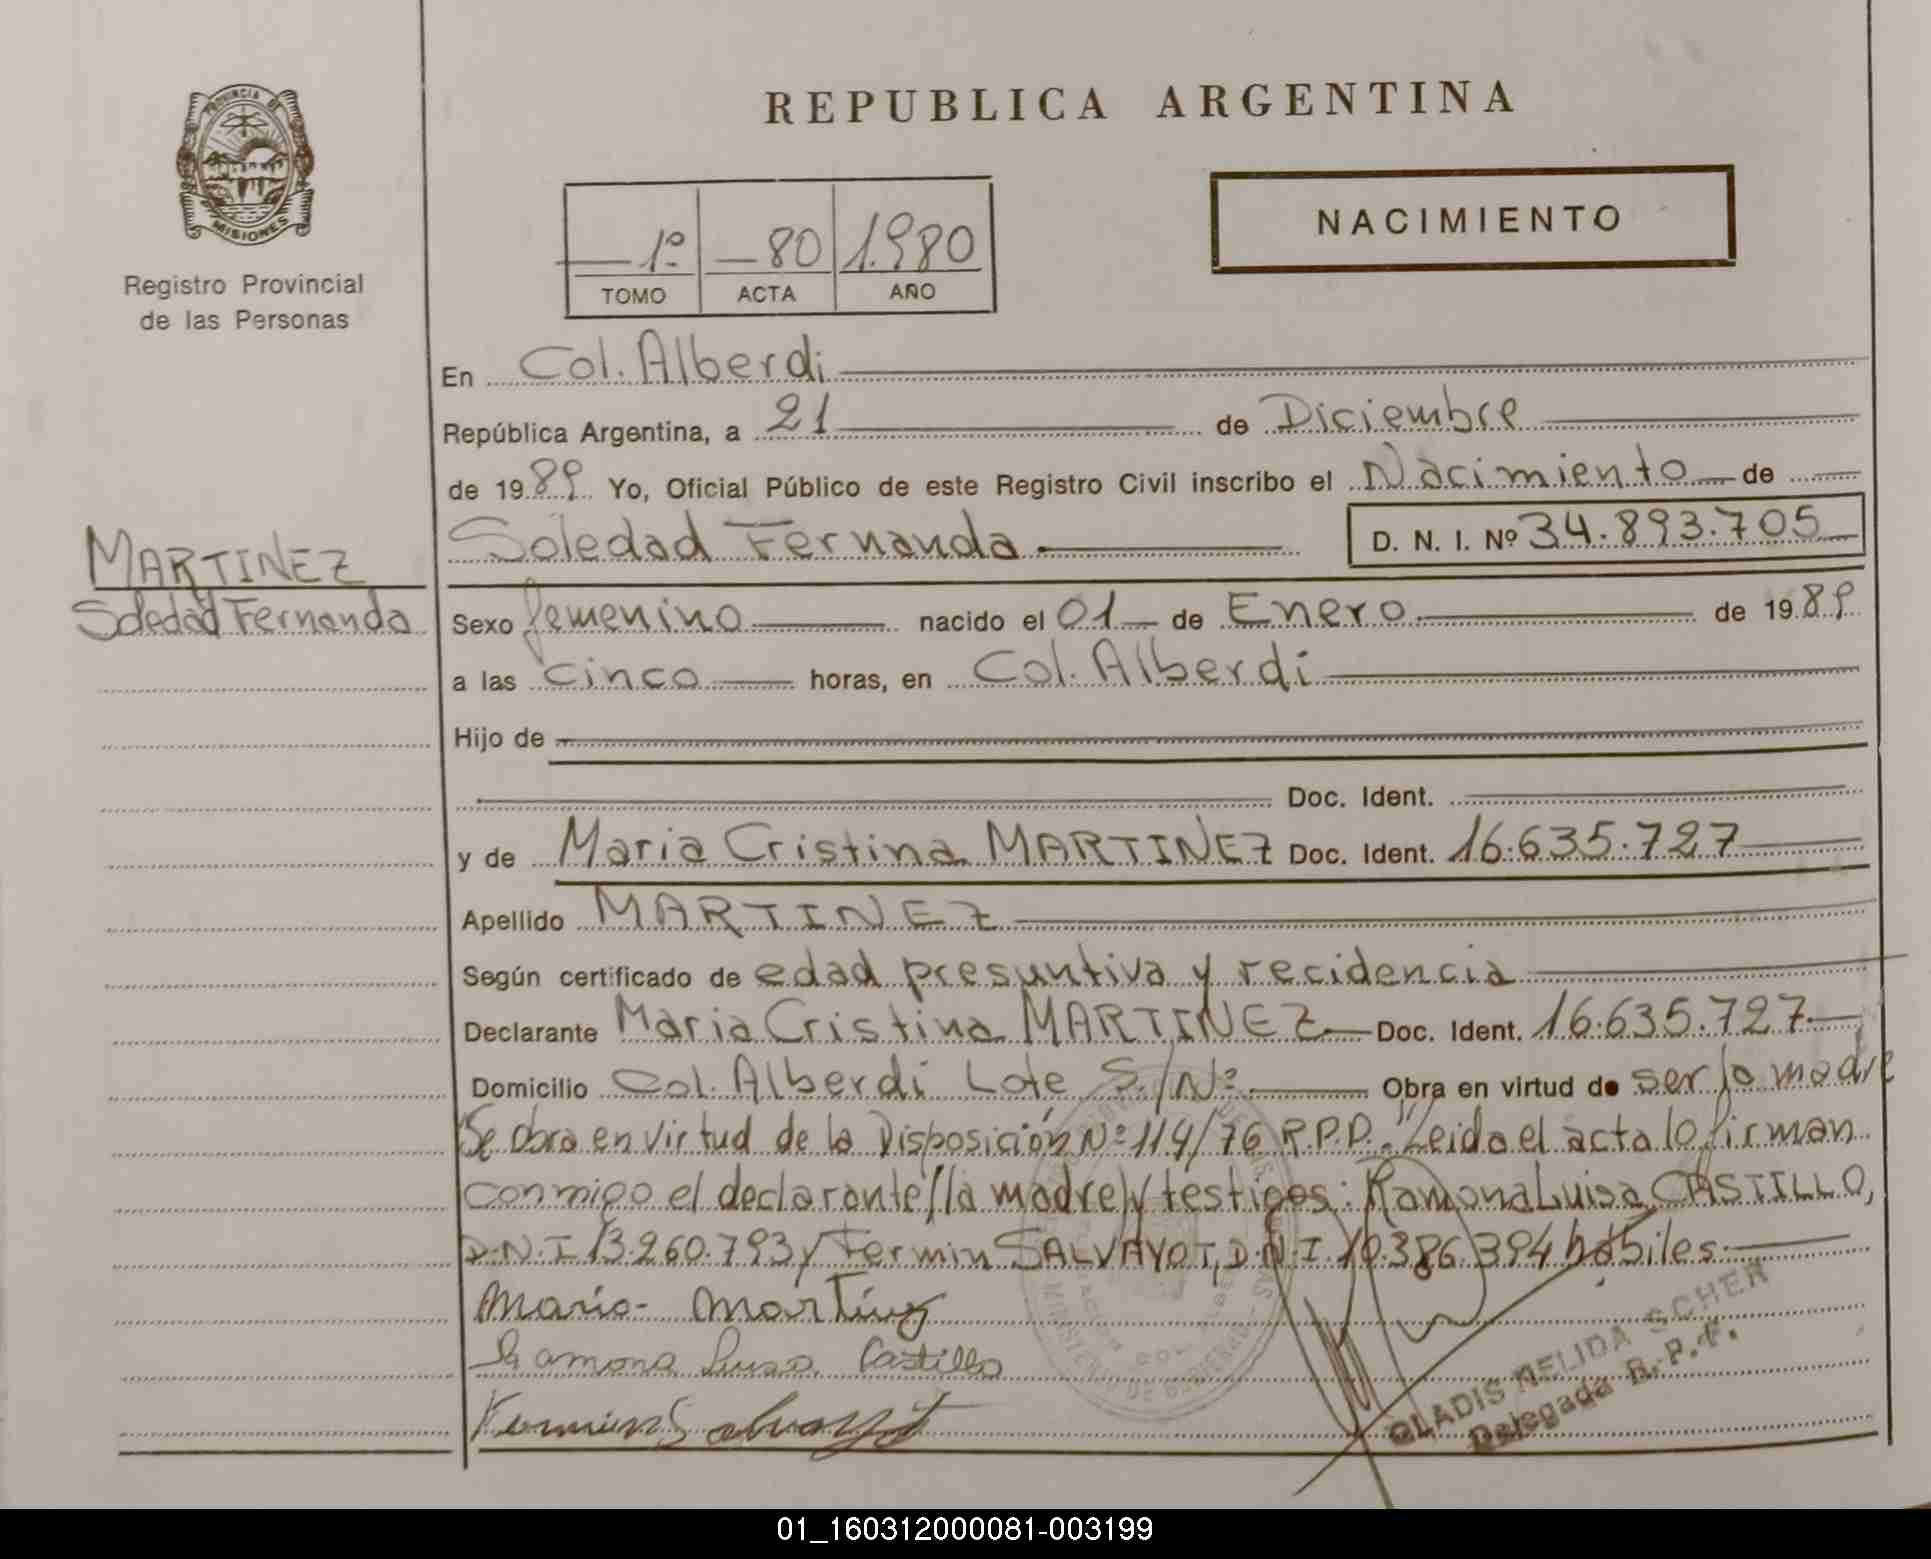 REPUBLICA ARGENTINA
PROVINCIA DE
MISIONES
Registro Provincial
de las Personas
1º 80 1.980
TOMO ACTA AÑO
NACIMIENTO
En Col. Alberdi
República Argentina, a 21 de Diciembre
de 1989 Yo, Oficial Público de este Registro Civil inscribo el Nacimiento de
Soledad Fernanda D. N. I. Nº 34.893.705
MARTINEZ
Soledad Fernanda
Sexo femenino nacido el 01 de Enero de 1989
a las cinco horas, en Col. Alberdi
Hijo de
Doc. Ident.
y de Maria Cristina MARTINEZ Doc. Ident. 16.635.727
Apellido MARTINEZ
Según certificado de edad presuntiva y recidencia
Declarante Maria Cristina MARTINEZ Doc. Ident. 16.635.727
Domicilio Col. Alberdi Lote S/Nº Obra en virtud de ser la madre
Se obra en virtud de la Disposición Nº 114/76 R.P.P. "Leida el acta lo firman
conmigo el declarante (la madre) y testigos: Ramona Luisa CASTILLO,
D.N.I 13.260.793 y Fermin SALVAYOT, D.N.I. 10.386.394 habiles
Maria Martinez
Ramona Luisa Castillo
Fermin Salvayot
MINISTERIO DE GOBIERNO
GLADIS NELIDA SCHER
Delegada R. P. P.
01_160312000081-003199